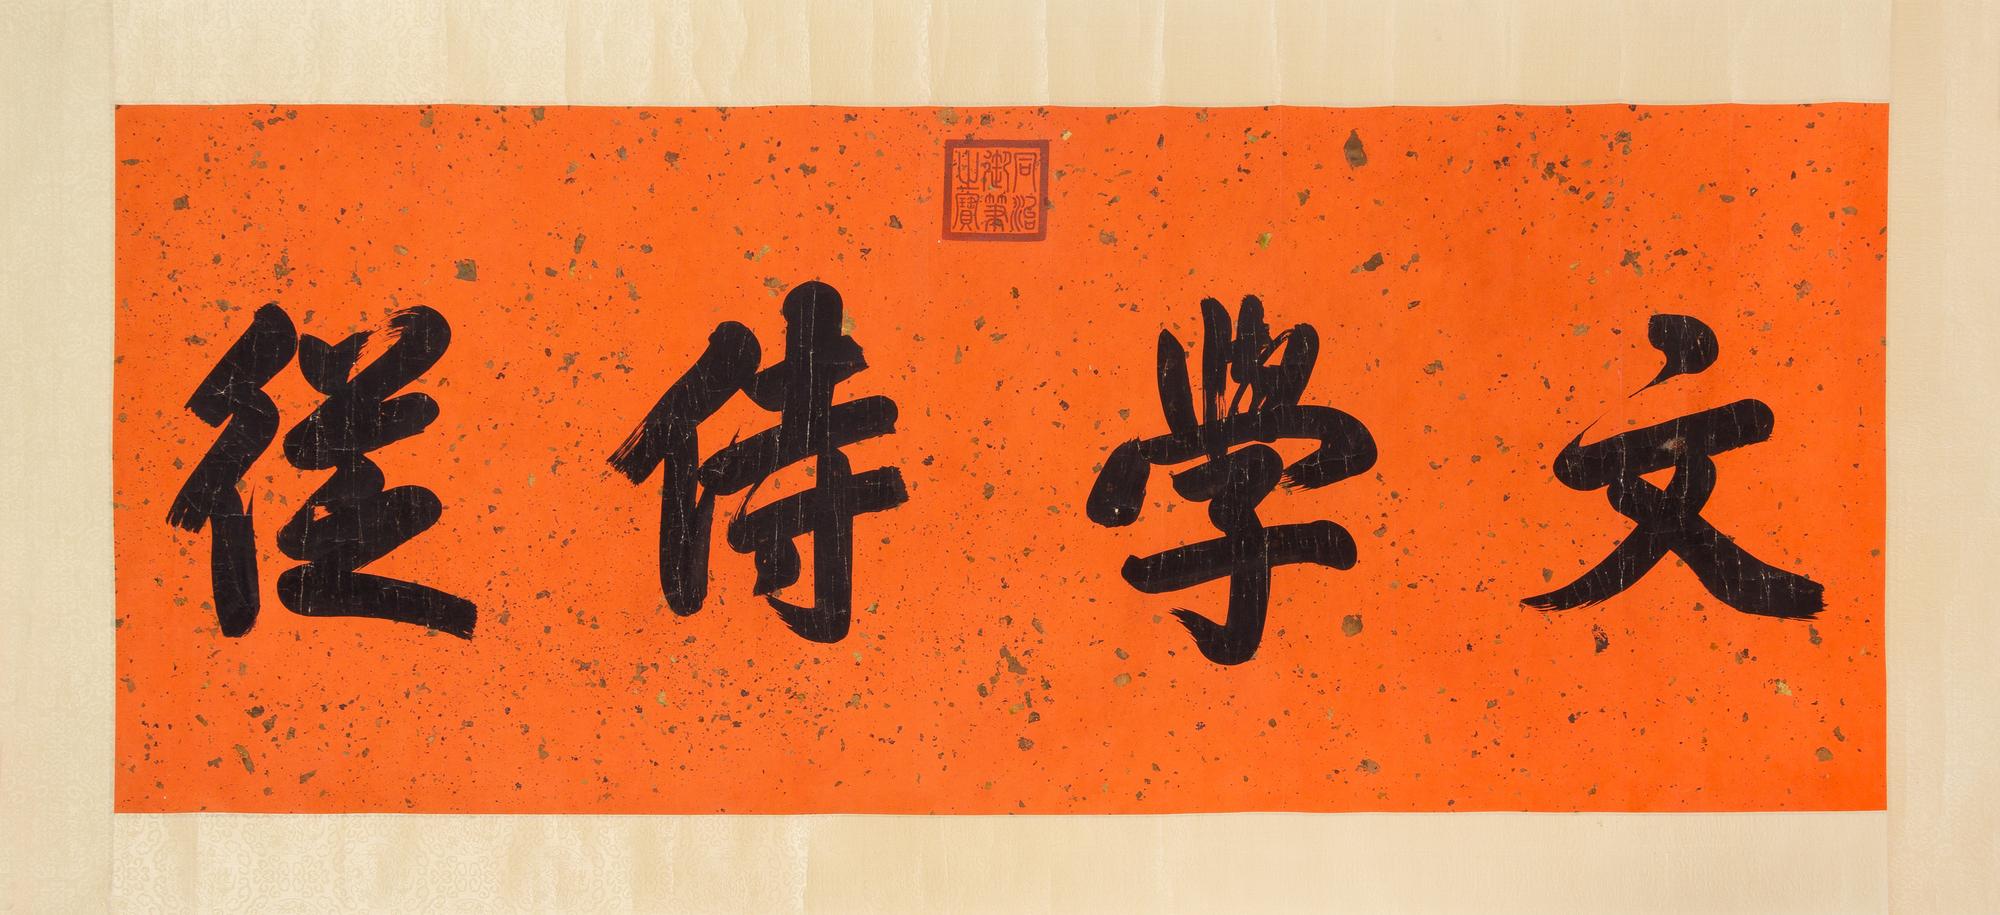 文學侍從
同治御筆之寶